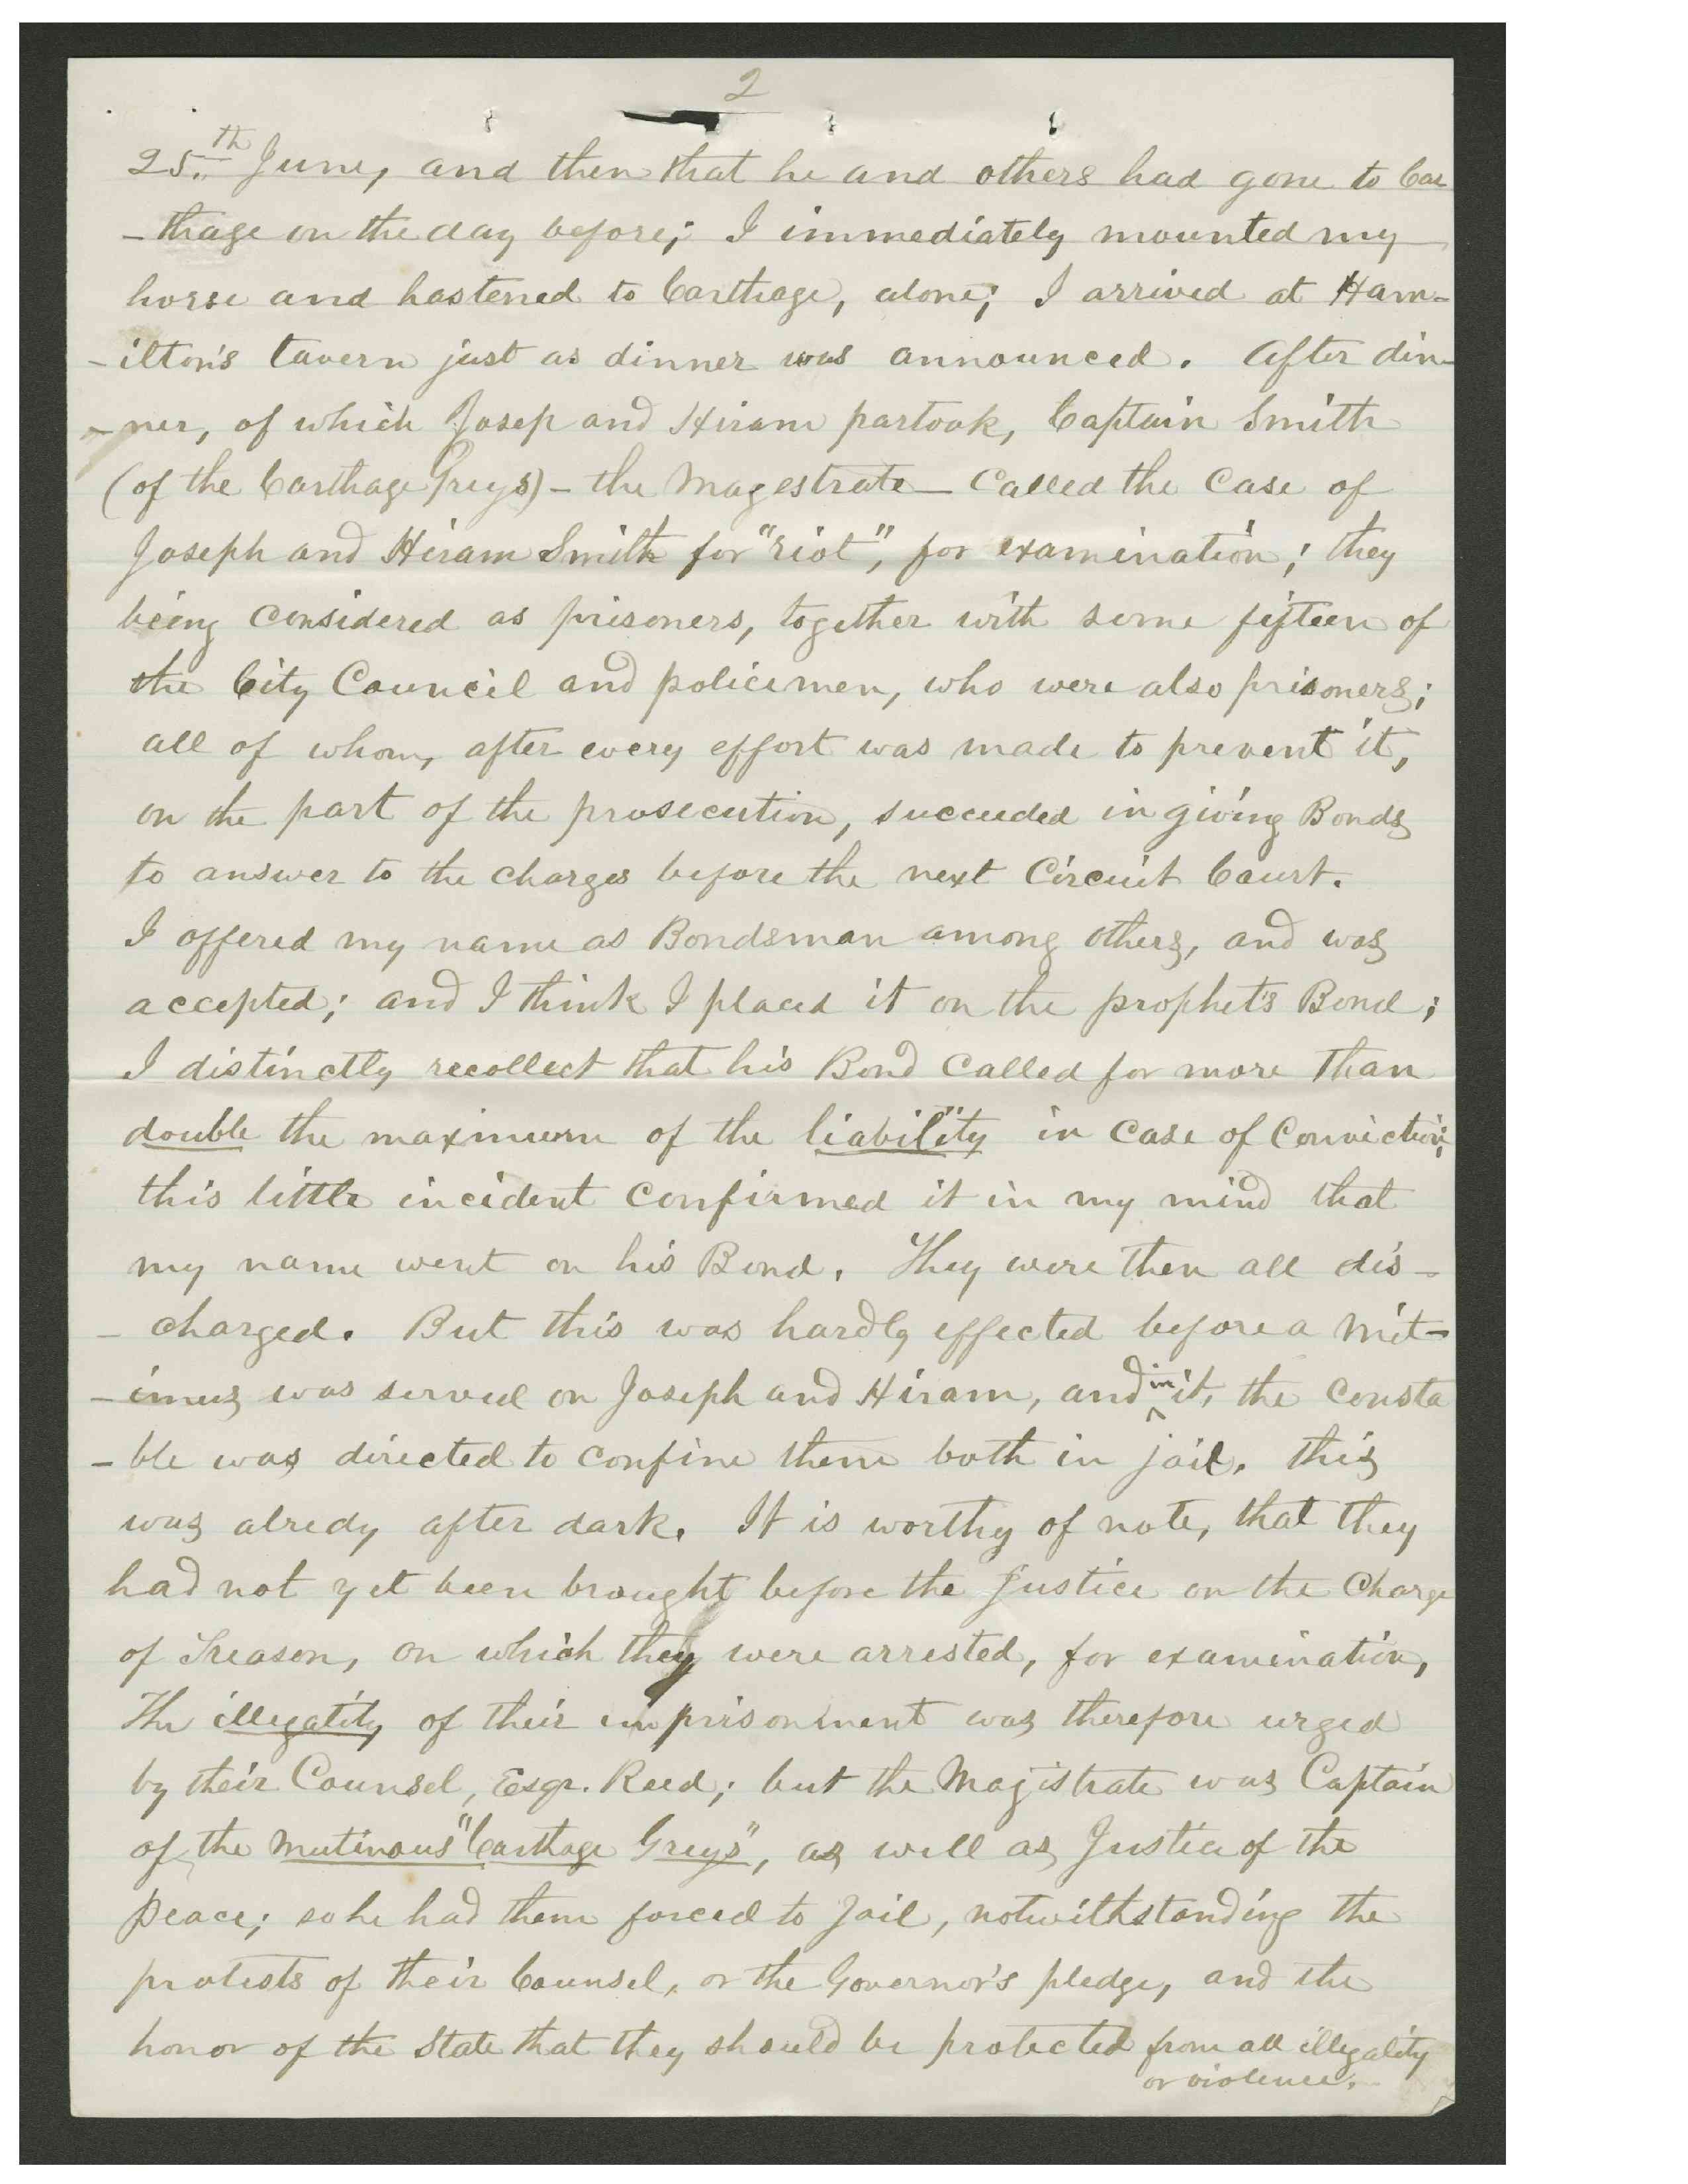 2
25.th June, and then that he and others had gone to Car
-thage on the day before; I immediately mounted my
horse and hastened to Carthage, alone; I arrived at Ham-
-ilton's tavern just as dinner was announced. After din-
-ner, of which Josep and Hiram partook, Captain Smith
(of the Carthage Greys) - the Magestrate - Called the Case of
Joseph and Hiram Smith for "riot", for examination; they
being considered as prisoners, together with some fifteen of
the City Council and policemen, who were also prisoners;
all of whom, after every effort was made to prevent it,
on the part of the prosecution, succeeded in giving Bonds
to answer to the charges before the next Circuit Court.
I offered my name as Bondsman among others, and was
accepted; and I think I placed it on the prophet's Bond;
I distinctly recollect that his Bond called for more than
double the maximum of the liability in case of Conviction;
this little incident confirmed it in my mind that
my name went on his Bond. They were then all dis-
- charged. But this was hardly effected before a Mit-
-imus was served on Joseph and Hiram, and in it, the Consta
-ble was directed to confine them both in jail. this
was alredy after dark. It is worthy of note, that they
had not yet been brought before the Justice on the Charge
of Treason, on which they were arrested, for examination,
The illegality of their imprisonment was therefore urged
by their Counsel, Esqr. Reed; but the Magistrate was Captain
of the mutinous "Carthage Greys", as well as Justice of the
Peace; so he had them forced to Jail, notwithstanding the
protests of their Counsel, or the Governor's pledge, and the
honor of the State that they should be protected from all illegality
or violence.